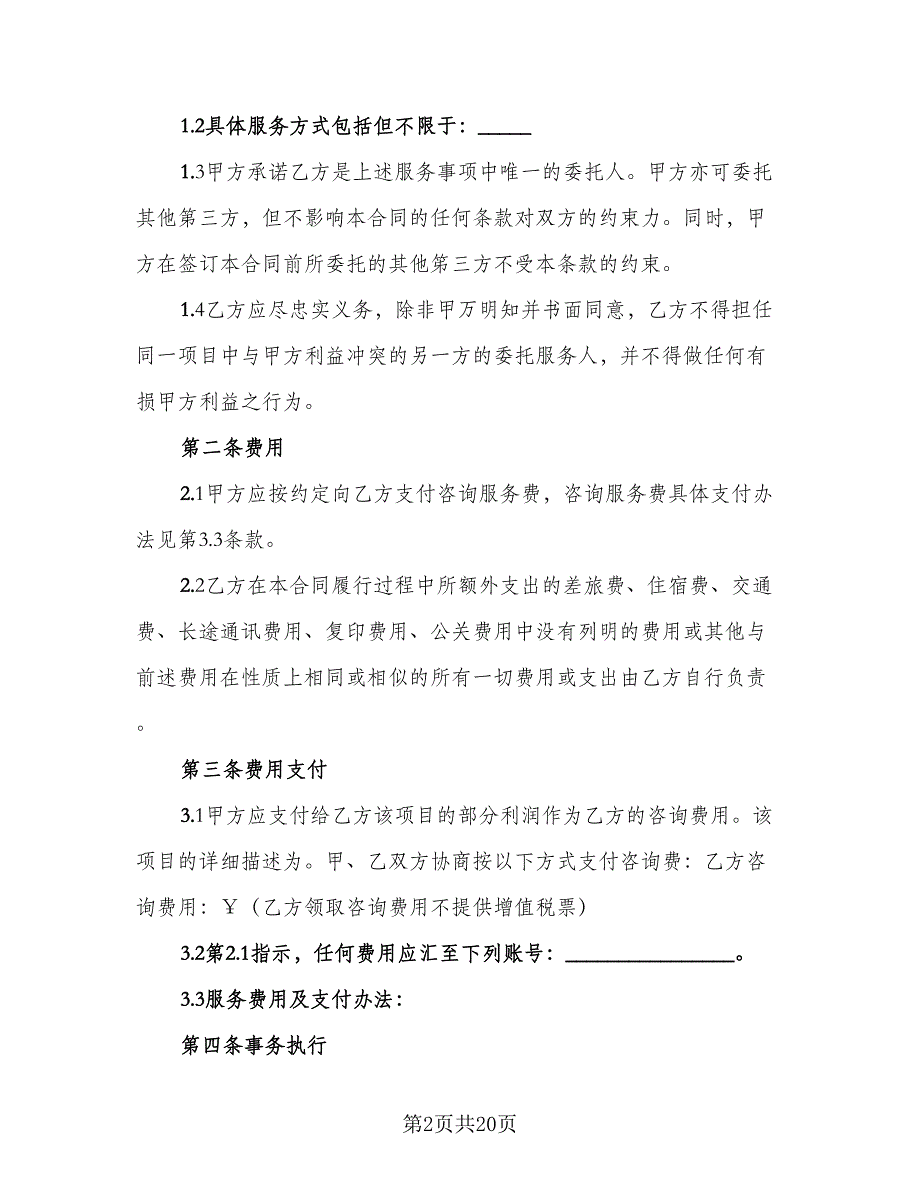 1.2具体服务方式包括但不限于：_____
1.3甲方承诺乙方是上述服务事项中唯一的委托人。甲方亦可委托
其他第三方，但不影响本合同的任何条款对双方的约束力。同时，甲
方在签订本合同前所委托的其他第三方不受本条款的约束。
1.4乙方应尽忠实义务，除非甲万明知并书面同意，乙方不得担任
同一项目中与甲方利益冲突的另一方的委托服务人，并不得做任何有
损甲方利益之行为。
第二条费用
2.1甲方应按约定向乙方支付咨询服务费，咨询服务费具体支付办
法见第3.3条款。
2.2乙方在本合同履行过程中所额外支出的差旅费、住宿费、交通
费、长途通讯费用、复印费用、公关费用中没有列明的费用或其他与
前述费用在性质上相同或相似的所有一切费用或支出由乙方自行负责
。
第三条费用支付
3.1甲方应支付给乙方该项目的部分利润作为乙方的咨询费用。该
项目的详细描述为。甲、乙双方协商按以下方式支付咨询费：乙方咨
询费用：￥（乙方领取咨询费用不提供增值税票）
3.2第2.1指示，任何费用应汇至下列账号：________________。
3.3服务费用及支付办法：
第四条事务执行
第2页共20页